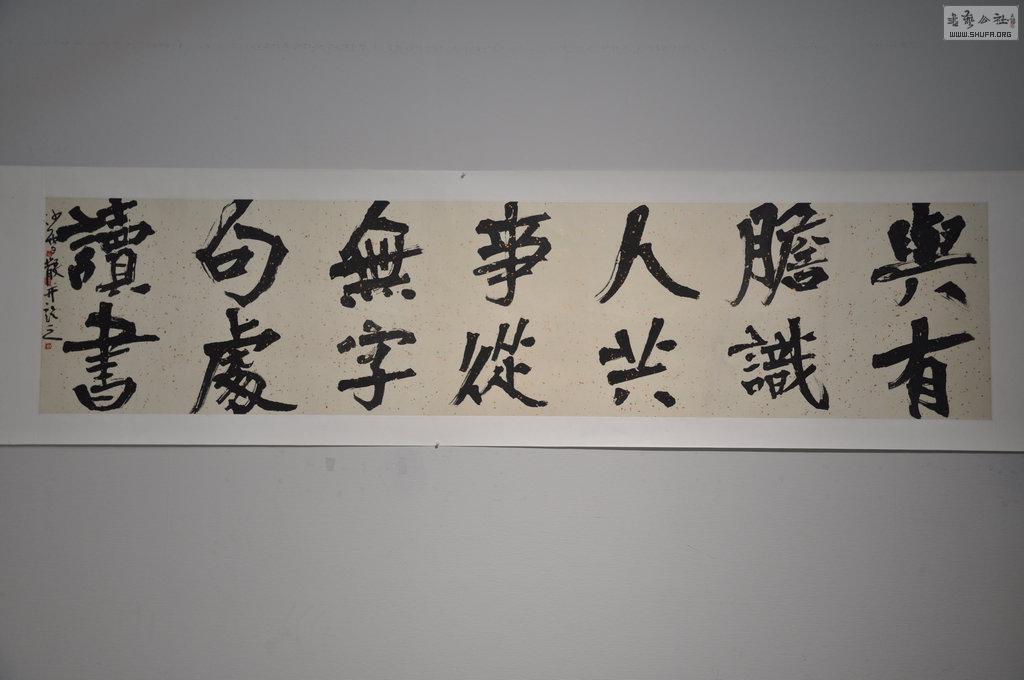 與有
膽識
人共
事從
無字
句處
讀書
書藝公社
WWW.SHUFA.ORG